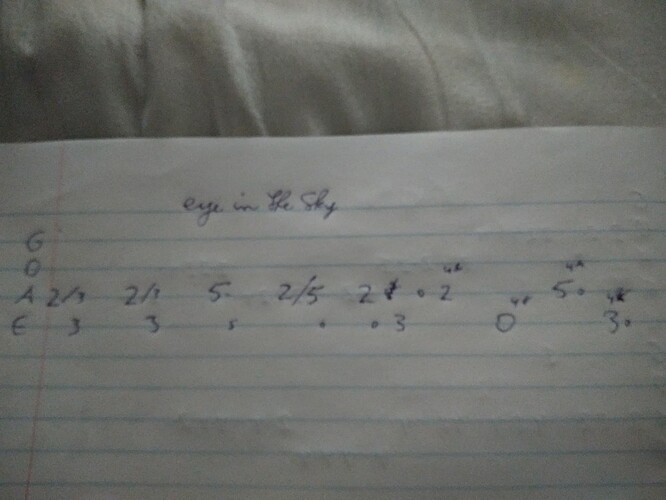 eye in the Sky
G
D
A 2/3 2/3 5 2/5 2 . 2 4x 5. 4x
E 3 3 s . . 3 0 4x 3. 4x